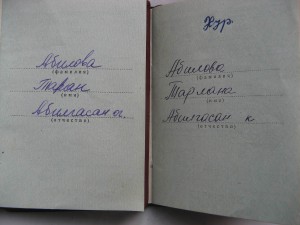 Абилова
(фамилия)
Таран
(имя)
Абилгасан ог.
(отчество)
Худ.
Абилова
(фамилия)
Тарлана
(имя)
Абилгасан к
(отчество)